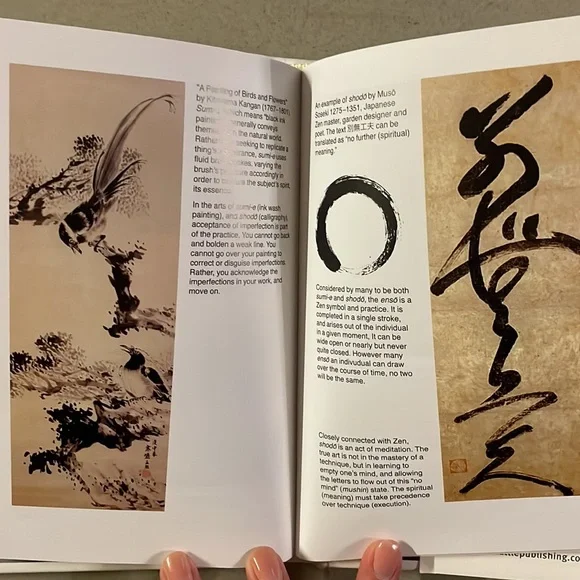 "A Painting of Birds and Flowers"
by Kitayama Kangan (1767-1801)
Sumi-e, which means "black ink
generally conveys
the natural world.
Rather seeking to replicate a
sumi-e uses
fluid varying the
brush's accordingly in
order to the subject's spirit,
its essence.
In the arts of sumi-e (ink wash
painting), and shodō (calligraphy),
acceptance of imperfection is part
of the practice. You cannot go back
and bolden a weak line. You
cannot go over your painting to
correct or disguise imperfections.
Rather, you acknowledge the
imperfections in your work, and
move on.
An example of shodō by Musō
Soseki 1275–1351, Japanese
Zen master, garden designer and
poet. The text 別無工夫 can be
translated as "no further (spiritual)
meaning."
Considered by many to be both
sumi-e and shodō, the ensō is a
Zen symbol and practice. It is
completed in a single stroke,
and arises out of the individual
in a given moment, It can be
wide open or nearly but never
quite closed. However many
ensō an indivudual can draw
over the course of time, no two
will be the same.
Closely connected with Zen,
shodō is an act of meditation. The
true art is not in the mastery of a
technique, but in learning to
empty one's mind, and allowing
the letters to flow out of this "no
mind" (mushin) state. The spiritual
(meaning) must take precedence
over technique (execution).
別無工夫
ttlepublishing.co